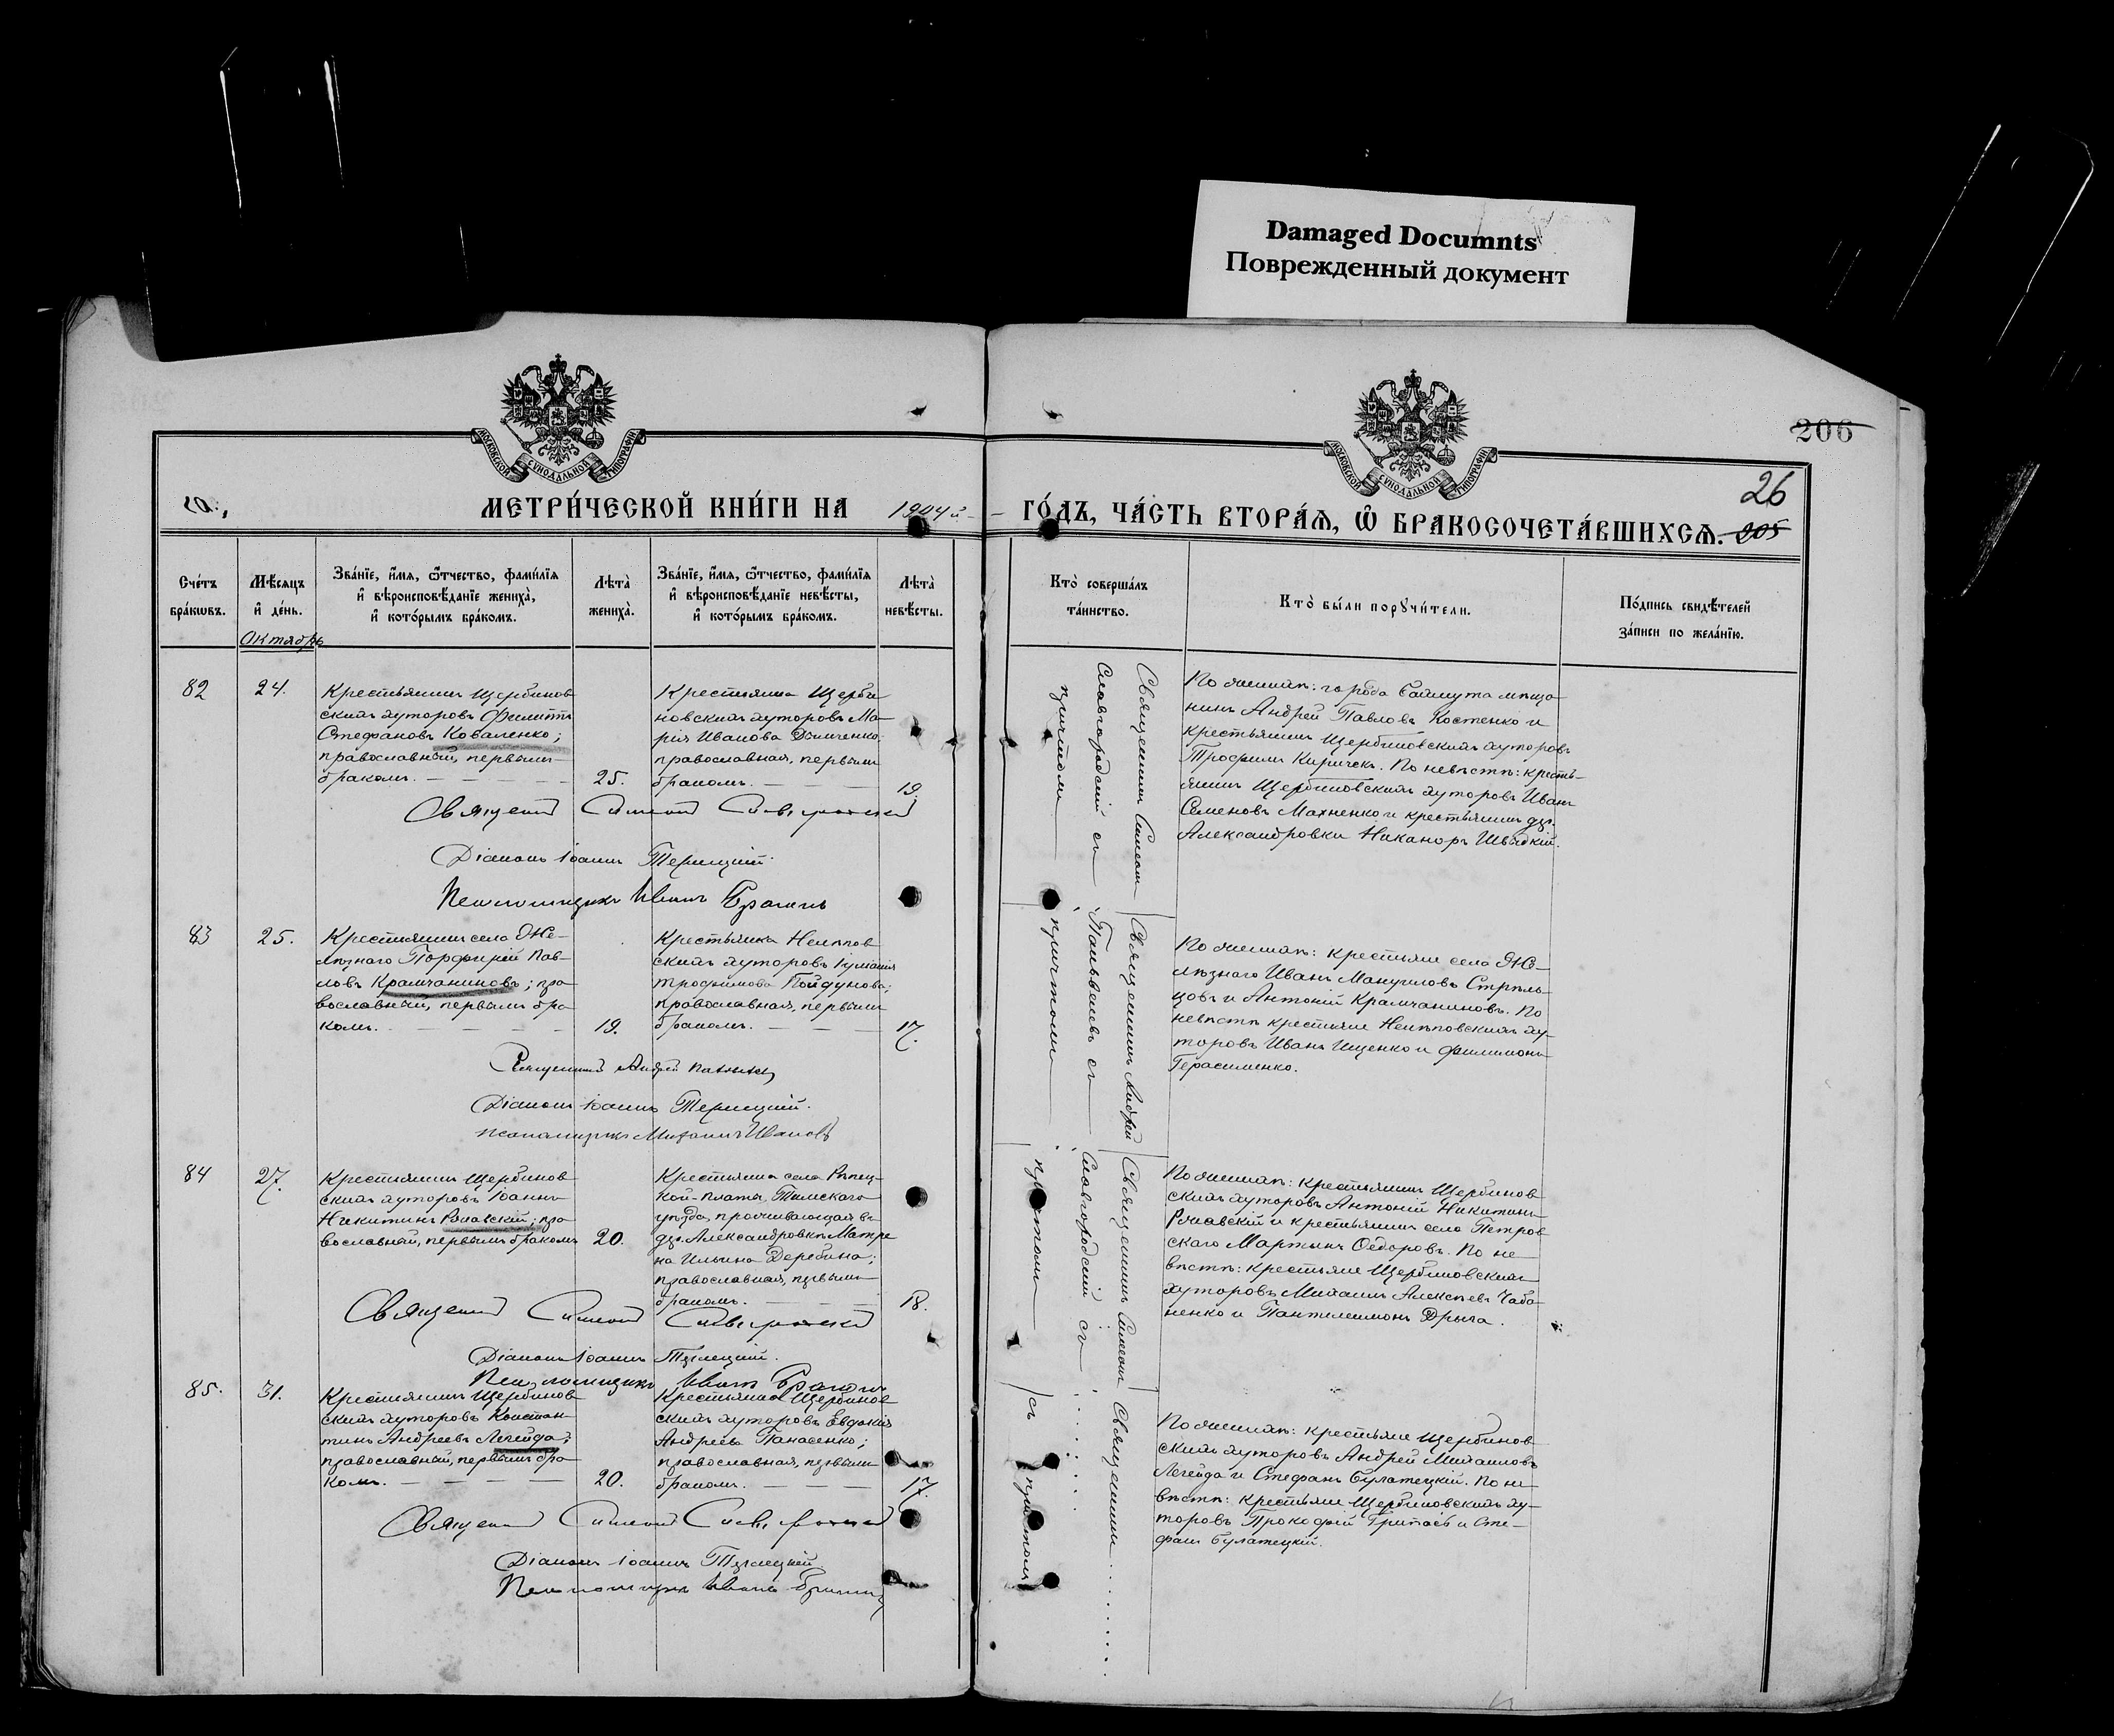 Damaged Documnts
Поврежденный документ
МОСКОВСКОЙ СУНОДАЛЬНОЙ ТИПОГРАФІИ
МОСКОВСКОЙ СУНОДАЛЬНОЙ ТИПОГРАФІИ
206
26
МЕТРИ́ЧЕСКОЙ КНИ́ГИ НА 1904й
ГО́ДЪ, ЧА́СТЬ ВТОРА́Я, Ѡ БРАКОСОЧЕТА́ВШИХСЯ. 205
Сче́тъ бра́кωвъ.
Мѣ́сяцъ и де́нь.
Зва́нїе, и́мя, ѻ́тчество, фами́лїя
и вѣроисповѣ́данїе жениха̀,
и кото́рымъ бра́комъ.
Лѣта̀ жениха̀.
Зва́нїе, и́мя, ѻ́тчество, фами́лїя
и вѣроисповѣ́данїе невѣ́сты,
и кото́рымъ бра́комъ.
Лѣта̀ невѣ́сты.
Кто̀ соверша́лъ та́инство.
Кто̀ бы́ли порꙋчи́тели.
По́дпись свидѣ́телей
за́писи по жела́нїю.
Октябрь
82
24.
Крестьянинъ Щербинов
скихъ хуторовъ Филиппъ
Стефановъ Коваленко;
православный, первымъ
бракомъ.
25.
Крестьянка Щерби
новскихъ хуторовъ Ма-
рія Иванова Демченко
православная, первымъ
бракомъ.
19.
Священникъ Симеонъ
Славгородскій съ
причтомъ
По женихѣ: города Бахмута мѣща
нинъ Андрей Павловъ Костенко и
крестьянинъ Щербиновскихъ хуторовъ
Трофимъ Киричекъ. По невѣстѣ: кресть-
янинъ Щербиновскихъ хуторовъ Иванъ
Семеновъ Махненко и крестьянинъ дер.
Александровки Никаноръ Швыдкій.
Священникъ Симеонъ Славгородскій
Діаконъ Іоаннъ
Псаломщикъ Иванъ
83
25.
Крестьянинъ села Же-
лѣзнаго Порфирій Пав-
ловъ Крамчаниновъ; пра
вославный, первымъ бра
комъ.
19.
Крестьянка Нелѣпов
скихъ хуторовъ
Трофимова
православная, первымъ
бракомъ.
17.
Священникъ Андрей
съ
причтомъ
По женихѣ: крестьяне села Же-
лѣзнаго Иванъ Мануиловъ Стрѣль-
цовъ и Антоній Крамчаниновъ. По
невѣстѣ крестьяне Нелѣповскихъ ху-
торовъ Иванъ Ищенко и Филимонъ
Герасименко.
Священникъ Андрей
Діаконъ Іоаннъ
Псаломщикъ Михаилъ Ивановъ
84
27.
Крестьянинъ Щербинов
скихъ хуторовъ Іоаннъ
Никитинъ Рочавскій; пра
вославный, первымъ бракомъ
20.
Крестьянка села Рѣпец-
кой-Платы, Тимскаго
уѣзда, проживающая въ
дер. Александровкѣ Матре
на Ильина Деребина;
православная, первымъ
бракомъ.
18.
Священникъ Симеонъ
Славгородскій съ
причтомъ
По женихѣ: крестьянинъ Щербинов
скихъ хуторовъ Антоній Никитинъ
Рочавскій и крестьянинъ села Петров
скаго Мартынъ Ѳедоровъ. По не
вѣстѣ: крестьяне Щербиновскихъ
хуторовъ Михаилъ Алексѣевъ Чаба
ненко и Пантелеимонъ Дрыга.
Священникъ Симеонъ Славгородскій
Діаконъ Іоаннъ
Псаломщикъ Иванъ
85.
31.
Крестьянинъ Щербинов
скихъ хуторовъ Констан-
тинъ Андреевъ Легейда;
православный, первымъ бра
комъ.
20.
Крестьянка Щербинов
скихъ хуторовъ Евдокія
Андреева Панасенко;
православная, первымъ
бракомъ.
17.
Священникъ
съ причтомъ
По женихѣ: крестьяне Щербинов
скихъ хуторовъ Андрей Михаиловъ
Легейда и Стефанъ Булатецкій. По не
вѣстѣ: крестьяне Щербиновскихъ ху-
торовъ Прокофій Припасъ и Сте-
фанъ Булатецкій.
Священникъ Симеонъ Славгородскій
Діаконъ Іоаннъ
Псаломщикъ Иванъ